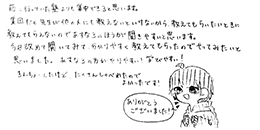 前に行っていた塾よりも集中できると思います。
質問だと先生が他の人にも教えないといけないから、教えてもらいたいときに
教えてもらえないのであすなろのほうが聞きやすいと思います。
今回改めて聞いてみて、分かりやすく教えてもらったのでやってみたいと
思いました。あすなろの方が分かりやすい!学びやすい!
きんちょーしたけど、たくさんしゃべれたので
よかったです!
ありがとう
ございました!